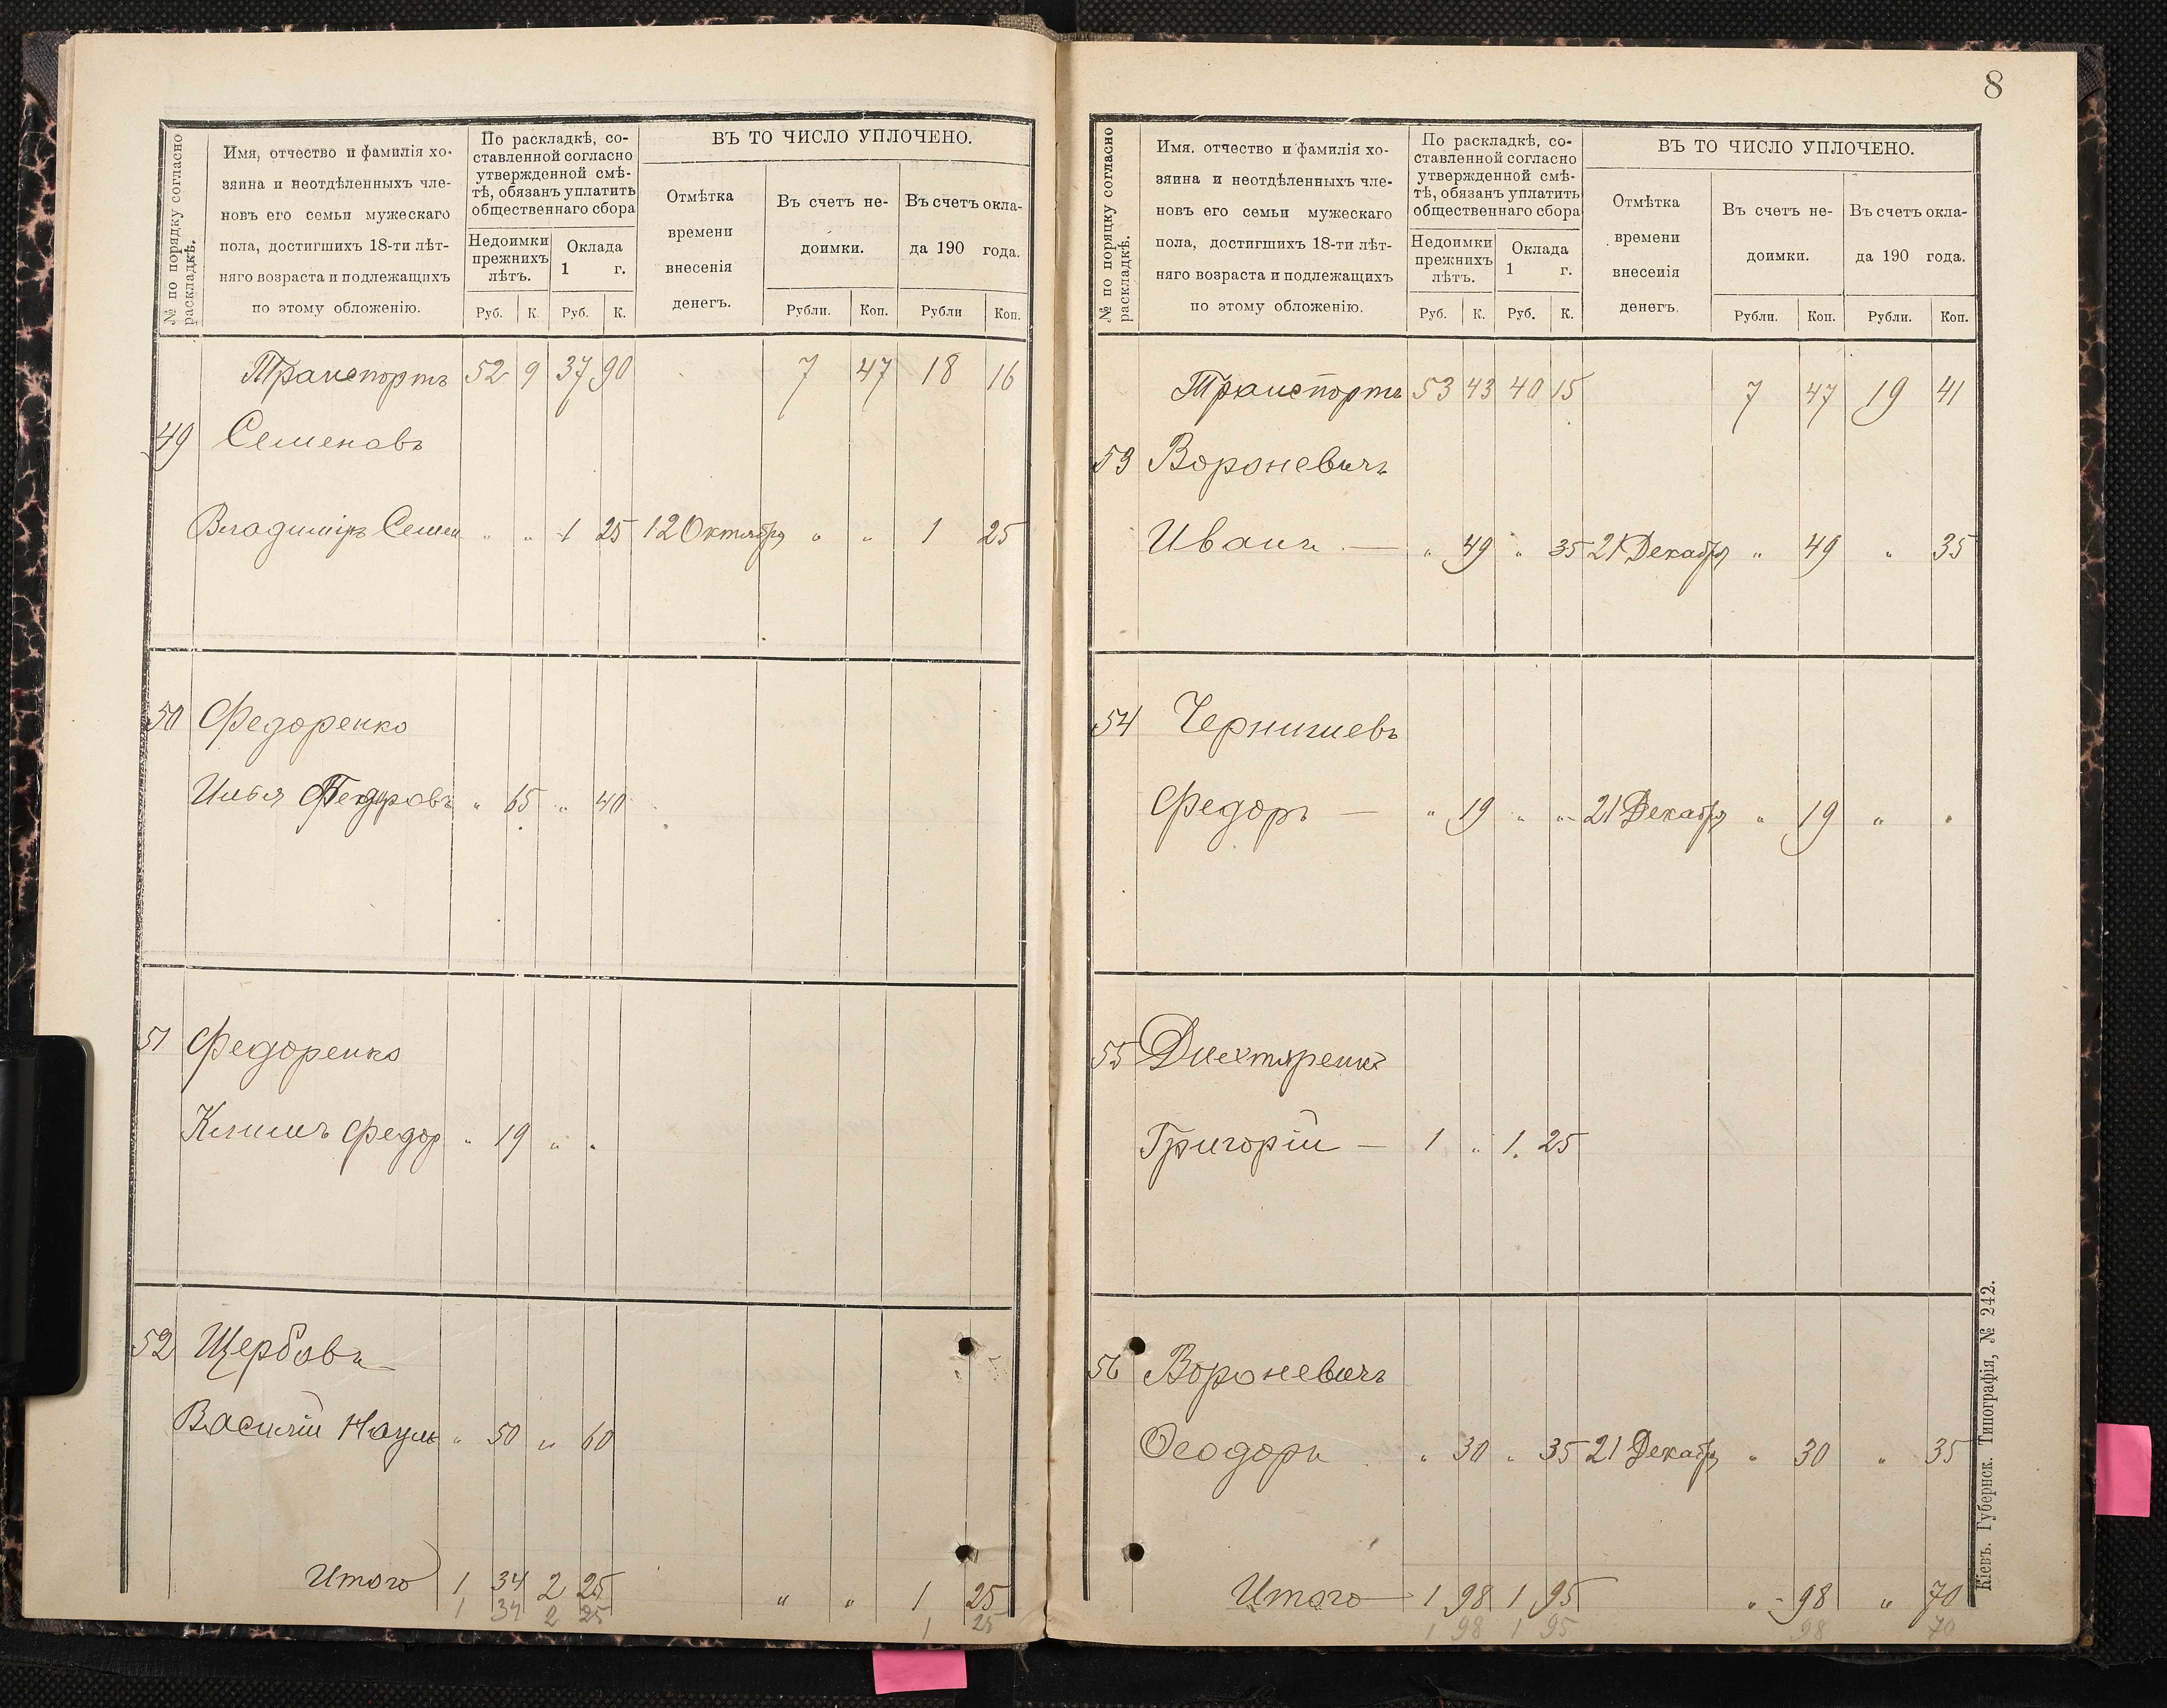 № по порядку согласно раскладкѣ.
Имя, отчество и фамилія хозяина и неотдѣленныхъ членовъ его семьи мужескаго пола, достигшихъ 18-ти лѣтняго возраста и подлежащихъ по этому обложенію.
По раскладкѣ, составленной согласно утвержденной смѣтѣ, обязанъ уплатить общественнаго сбора
Недоимки прежнихъ лѣтъ.
Оклада 1 г.
Руб. К. Руб. К.
ВЪ ТО ЧИСЛО УПЛОЧЕНО.
Отмѣтка времени внесенія денегъ.
Въ счетъ недоимки.
Въ счетъ оклада 190 года.
Рубли. Коп. Рубли Коп.
Транспортъ 52 9 37 90 7 47 18 16
49 Семеновъ
Владиміръ Семен " " 1 25 12 Октября " " 1 25
50 Федоренко
Илья Федоровъ " 65 " 40
51 Федоренко
Климъ Федор " 19 " "
52 Щербовъ
Василій Наум " 50 " 60
Итого 1 34 2 25 " " 1 25
1 34 2 25 1 25
8
№ по порядку согласно раскладкѣ.
Имя. отчество и фамилія хозяина и неотдѣленныхъ членовъ его семьи мужескаго пола, достигшихъ 18-ти лѣтняго возраста и подлежащихъ по этому обложенію.
По раскладкѣ, составленной согласно утвержденной смѣтѣ, обязанъ уплатить общественнаго сбора
Недоимки прежнихъ лѣтъ.
Оклада 1 г.
Руб. К. Руб. К.
ВЪ ТО ЧИСЛО УПЛОЧЕНО.
Отмѣтка времени внесенія денегъ.
Въ счетъ недоимки.
Въ счетъ оклада 190 года.
Рубли. Коп. Рубли. Коп.
Транспортъ 53 43 40 15 7 47 19 41
53 Вороневичъ
Иванъ — " 49 " 35 21 Декабря " 49 " 35
54 Чернишевъ
Федоръ — " 19 " " 21 Декабря " 19 " "
55 Дихтяренко
Григорій — 1 " 1. 25
56 Вороневичъ
Ѳеодоръ " 30 " 35 21 Декабря " 30 " 35
Итого — 1 98 1 95 " 98 " 70
1 98 1 95 98 70
Кіевъ. Губернск. Типографія, № 242.